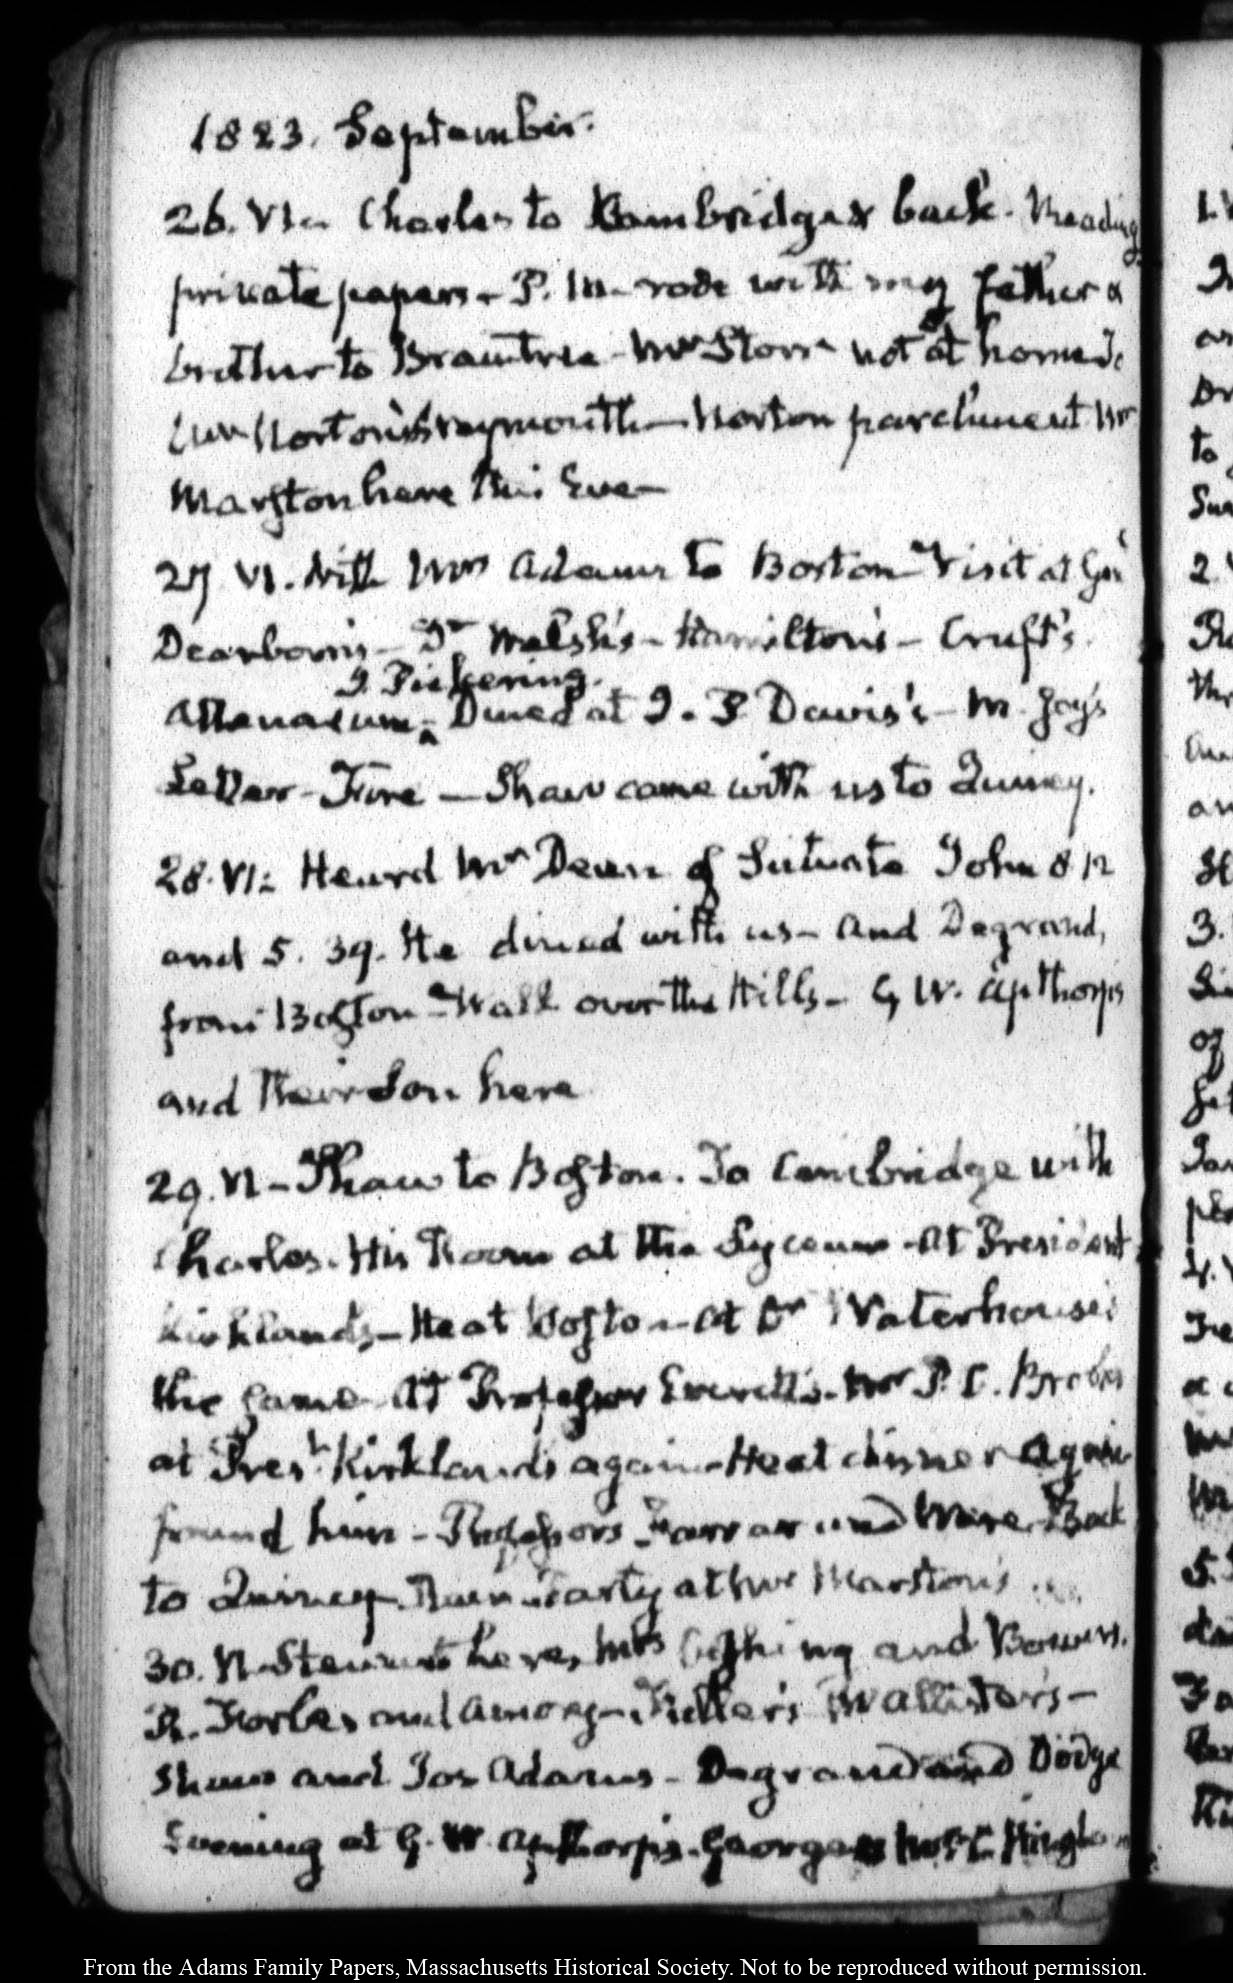 1823. September.
26. VI. Charles to Cambridge & back. Reading
private papers - P.M. rode with my father &
brother to Braintree - Mr Storrs not at home
Norton's Weymouth - Norton parchment Mr
Marston here this Eve -
27 VI. With Mrs Adams to Boston - Visit at Gen
Dearborn's - Dr Welsh's - Hamilton's - Cruft's
I Pickering.
Athenaeum - Dined at I. P. Davis's - M. Joy's
Letter - Fire - Shaw came with us to Quincy.
28. VI: Heard Mr Deane of Scituate John 8 12
and 5. 39. He dined with us - and Degrand,
from Boston - Walk over the Hills - G W. Apthorps
and their Son here
29. VI - Shaw to Boston. To Cambridge with
Charles. His Room at the Lyceum - At President
Kirklands - He at Boston - at Dr Waterhouse's
the same - At Professor Everett's - Mr P. C. Brooks
at Prest. Kirkland's again - He at dinner Again
found him - Professors Farrar and Ware - Back
to Quincy. Party at Mr Marston's
30. VI. here, Mrs Cushing and
and Emory -
Shaw and Jos Adams - Degrand and Dodge
Evening at G. W. Apthorp's. George Hingham
From the Adams Family Papers, Massachusetts Historical Society. Not to be reproduced without permission.